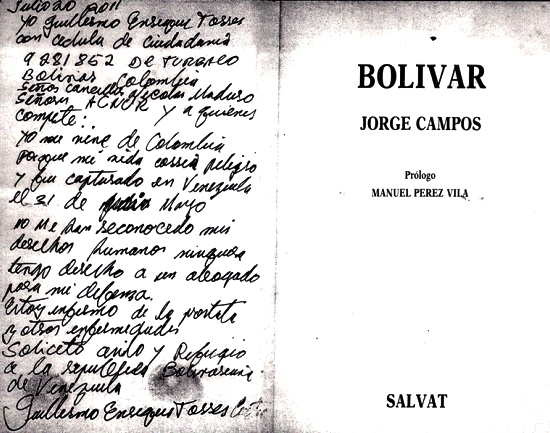 Julio 20 2011
Yo Guillermo Enrique Torres
con cedula de ciudadania
9281852 DE TURBACO
Bolivar Colombia
Señor canciller Nicolas Maduro
Señores ACNUR y a quienes
compete:
Yo me vine de Colombia
porque mi vida corria peligro
y fui capturado en Venezuela
el 31 de Mayo
no Me han reconocedo mis
derechos humanos ninguno
tengo derecho a un abogado
para mi defenza.
Estoy enfermo de la prostata
y otras enfermedades
Soliceto asilo y Refugio
a la republica Bolivariana
de Venezuela
Guillermo Enrique Torres
BOLIVAR
JORGE CAMPOS
Prólogo
MANUEL PEREZ VILA
SALVAT